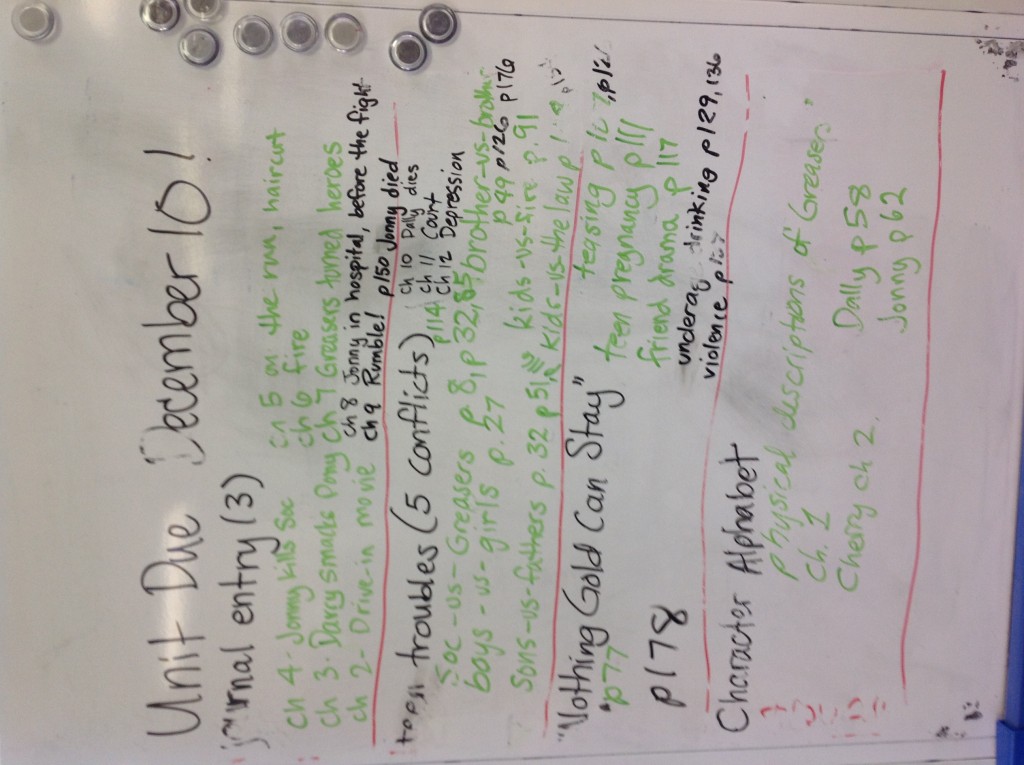 Unit Due December 10!
journal entry (3)
ch 4 - Jonny kills Soc ch 5 on the run, haircut
ch 3 - Darry smacks Pony ch 6 fire
ch 2 - Drive-in movie ch 7 Greasers turned heroes
ch 8 Jonny in hospital, before the fight
ch 9 Rumble! p150 Jonny died
troubles (5 conflicts) ch 10 Dally dies
p114 ch 11 Court
ch 12 Depression
Soc-vs-Greasers p 8, p 32, 85, brother-vs-brother
boys-vs-girls p. 27 p 49 p126 p176
kids-vs-fire p. 91
sons-vs-fathers p. 32 p 51, kids-vs-the law
"Nothing Gold Can Stay" teasing
p77 teen pregnancy p111
friend drama p 117
p178 drinking p129, 136
violence
Character Alphabet
Physical descriptions of Greasers
Ch. 1
Cherry ch 2. Dally p 58
Jonny p 62